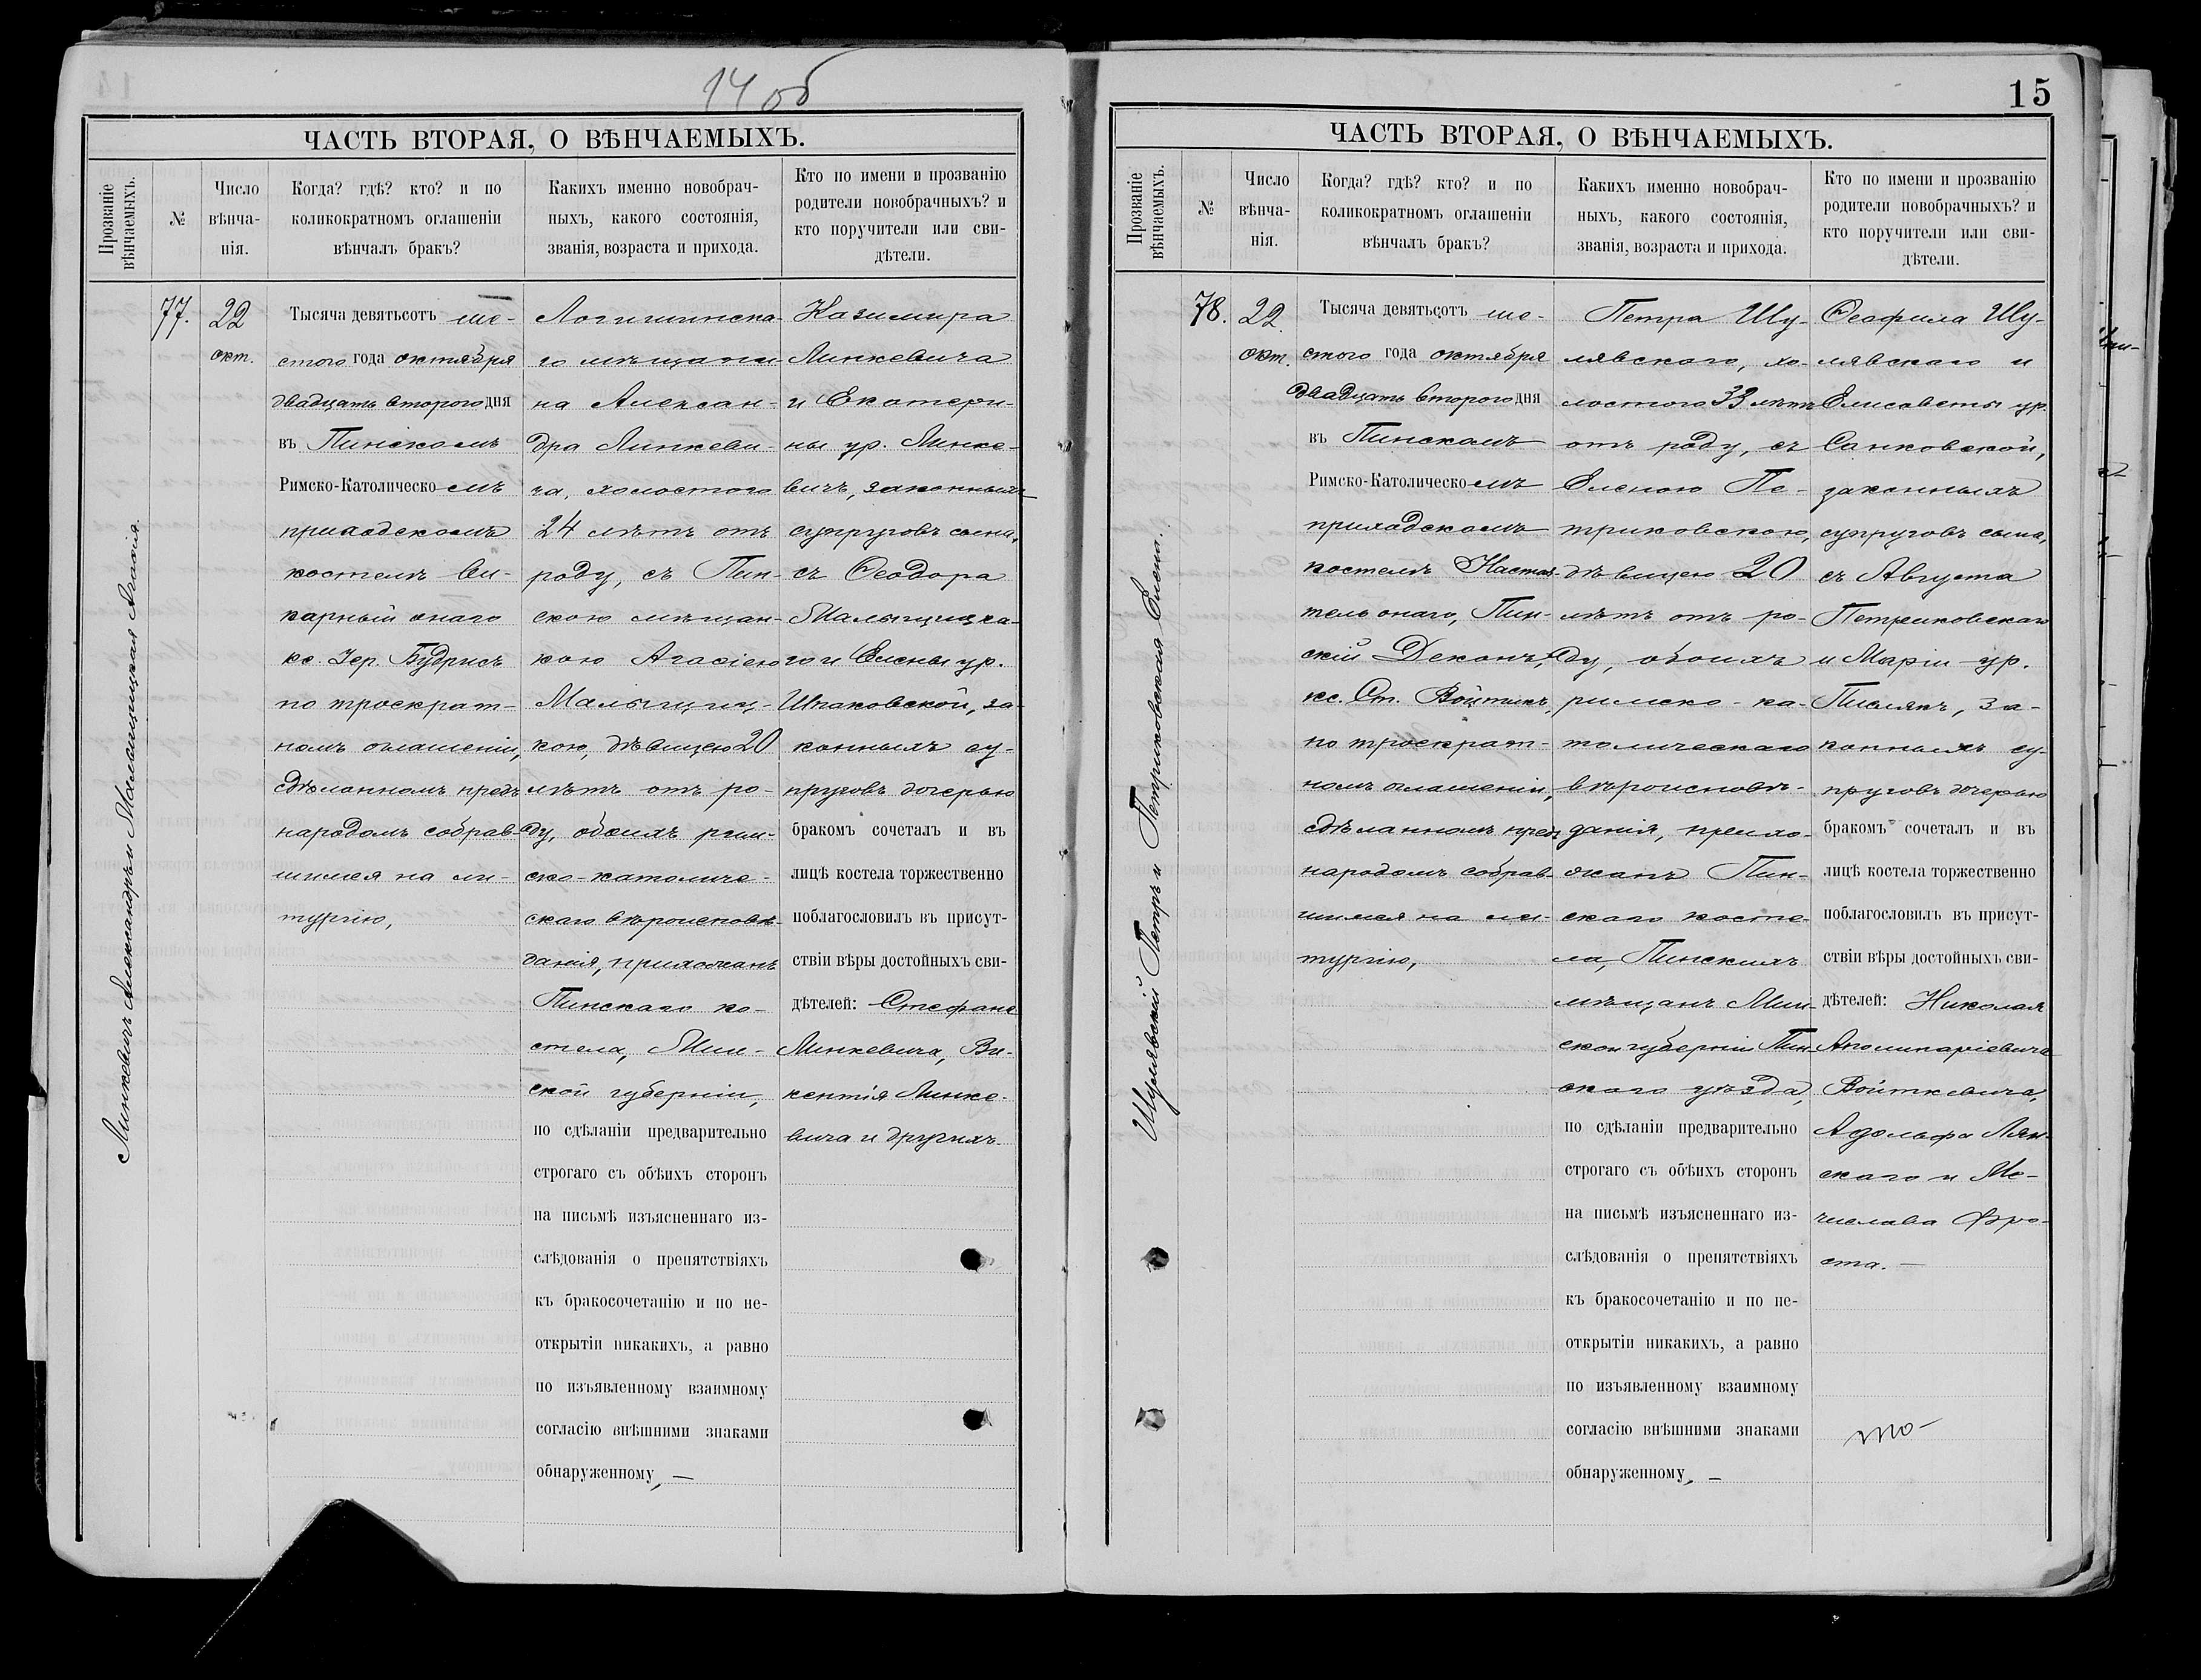 14 об
ЧАСТЬ ВТОРАЯ, О ВѢНЧАЕМЫХЪ.
Прозваніе
вѣнчаемыхъ.
№
Число
вѣнча-
нія.
Когда? гдѣ? кто? и по
коликократномъ оглашеніи
вѣнчалъ бракъ?
Какихъ именно новобрач-
ныхъ, какого состоянія,
званія, возраста и прихода.
Кто по имени и прозванію
родители новобрачныхъ? и
кто поручители или сви-
дѣтели.
Линкевичъ Александръ и Малыщицкая Агаѳія.
77.
22
окт.
Тысяча девятьсотъ ше-
стого года октября
двадцать второго дня
въ Пинскомъ
Римско-Католическомъ
приходскомъ
костелѣ Ви-
карный онаго
кс. Іер. Будрисъ
по троекрат-
номъ оглашеніи,
сдѣланномъ предъ
народомъ собрав-
шимся на ли-
тургію,
Логишинска-
го мѣщани-
на Алексан-
дра Линкеви-
ча, холостого
24 лѣтъ отъ
роду, съ Пин-
скою мѣщан-
кою Агаѳіею
Малыщиц-
кою, дѣвицею 20
лѣтъ отъ ро-
ду, обоихъ рим-
ско-католиче-
скаго вѣроисповѣ-
данія, прихожанъ
Пинскаго ко-
стела, Мин-
ской губерніи,
по сдѣланіи предварительно
строгаго съ обѣихъ сторонъ
на письмѣ изъясненнаго из-
слѣдованія о препятствіяхъ
къ бракосочетанію и по не-
открытіи никакихъ, а равно
по изъявленному взаимному
согласію внѣшними знаками
обнаруженному, —
Казимира
Линкевича
и Екатери-
ны ур. Линке-
вичъ, законныхъ
супруговъ сына,
съ Ѳеодора
Малыщицка-
го и Елены ур.
Шпаковской, за-
конныхъ су-
пруговъ дочерью
бракомъ сочеталъ и въ
лицѣ костела торжественно
поблагословилъ въ присут-
ствіи вѣры достойныхъ сви-
дѣтелей: Стефана
Линкевича, Ви-
кентія Линке-
вича и другихъ.
15
ЧАСТЬ ВТОРАЯ, О ВѢНЧАЕМЫХЪ.
Прозваніе
вѣнчаемыхъ.
№
Число
вѣнча-
нія.
Когда? гдѣ? кто? и по
коликократномъ оглашеніи
вѣнчалъ бракъ?
Какихъ именно новобрач-
ныхъ, какого состоянія,
званія, возраста и прихода.
Кто по имени и прозванію
родители новобрачныхъ? и
кто поручители или сви-
дѣтели.
Шулявскій Петръ и Петриковская Елена.
78.
22.
окт.
Тысяча девятьсотъ ше-
стого года октября
двадцать второго дня
въ Пинскомъ
Римско-Католическомъ
приходскомъ
костелѣ Настоя-
тель онаго, Пин-
скій Деканъ,
кс. Ст. Войтыкъ,
по троекрат-
номъ оглашеніи,
сдѣланномъ предъ
народомъ собрав-
шимся на ли-
тургію,
Петра Шу-
лявского, хо-
лостого 33 лѣтъ
отъ роду, съ
Еленою Пе-
триковскою,
дѣвицею 20
лѣтъ отъ ро-
ду, обоихъ
римско-ка-
толическаго
вѣроисповѣ-
данія, прихо-
жанъ Пин-
скаго косте-
ла, Пинскихъ
мѣщанъ Мин-
ской губерніи Пин-
скаго уѣзда,
по сдѣланіи предварительно
строгаго съ обѣихъ сторонъ
на письмѣ изъясненнаго из-
слѣдованія о препятствіяхъ
къ бракосочетанію и по не-
открытіи никакихъ, а равно
по изъявленному взаимному
согласію внѣшними знаками
обнаруженному, —
Ѳеофила Шу-
лявскаго и
Елисаветы ур.
Санковской,
законныхъ
супруговъ сына,
съ Августа
Петриковскаго
и Маріи ур.
за-
конныхъ су-
пруговъ дочерью
бракомъ сочеталъ и въ
лицѣ костела торжественно
поблагословилъ въ присут-
ствіи вѣры достойныхъ сви-
дѣтелей: Николая
Аполинаріевича
Войткевича,
Адольфа Лян-
скаго и Ме-
числава Фро-
ста. —